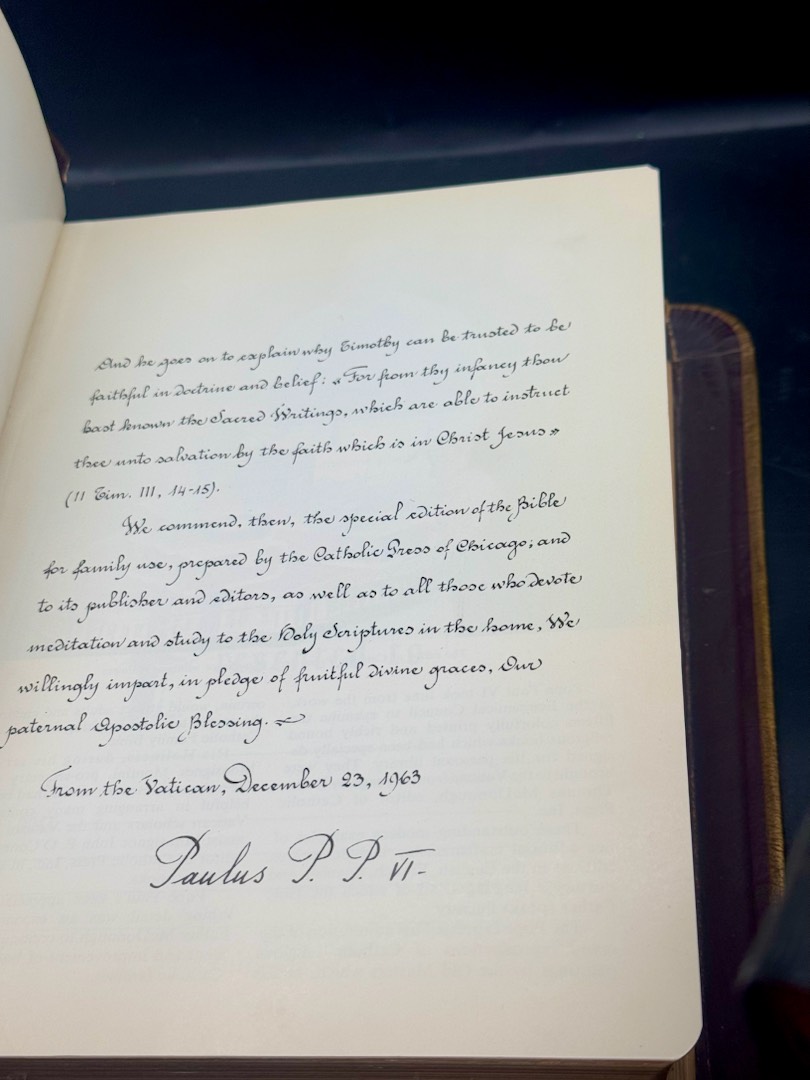 And he goes on to explain why Timothy can be trusted to be
faithful in doctrine and belief: «For from thy infancy thou
hast known the Sacred Writings, which are able to instruct
thee unto salvation by the faith which is in Christ Jesus»
(II Tim. III, 14-15).
We commend, then, the special edition of the Bible
for family use, prepared by the Catholic Press of Chicago; and
to its publisher and editors, as well as to all those who devote
meditation and study to the Holy Scriptures in the home, We
willingly impart, in pledge of fruitful divine graces, Our
paternal Apostolic Blessing.
From the Vatican, December 23, 1963
Paulus P. P. VI-